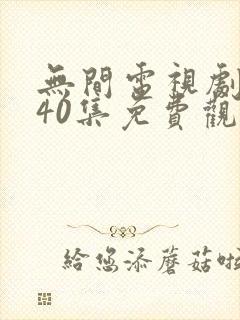 無間電視劇
40集免費觀
給您添蘑菇啦